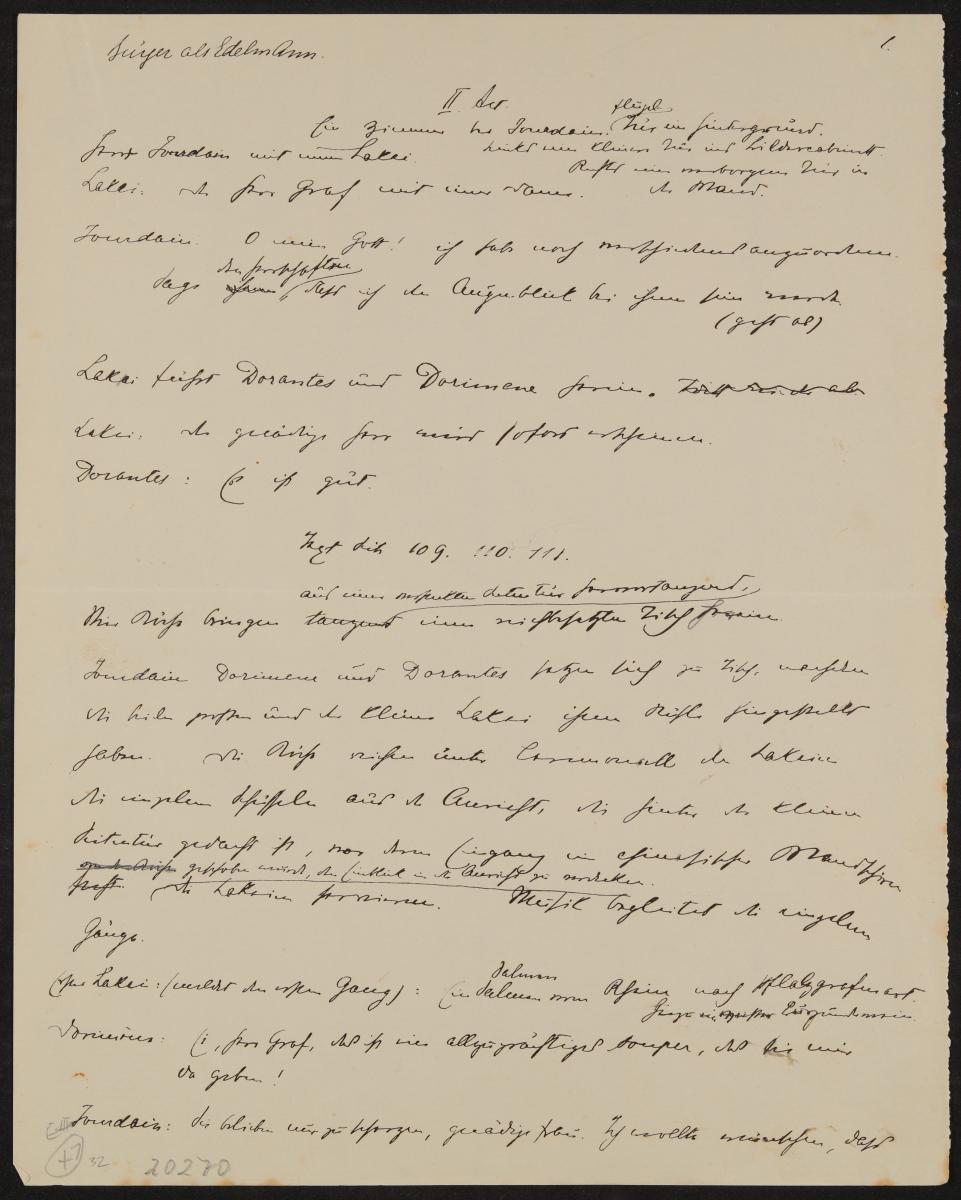 Bürger als Edelmann.
1.
II. Act.
Ein Zimmer bei Jourdain. Flügel
Thür im Hintergrund.
Links eine kleinere Thür ins Bildercabinett.
Rechts eine verborgene Thür in
der Wand.
Herr Jourdain mit einem Lakei.
Lakei: Der Herr Graf mit einer Dame.
Jourdain. O mein Gott! ich habe noch verschiedenes anzuordnen.
den Herrschaften
Sage ihnen, dass ich den Augenblick bei ihnen sein werde.
(geht ab)
Lakei führt Dorantes und Dorimene herein. Tritt ab.
Lakei: Der gnädige Herr wird sofort erscheinen.
Dorantes: Es ist gut.
Text Seite 109. 110. 111.
aus einer versteckten Seitentür hervortanzend,
Vier Köche bringen tanzend einen reichbesetzten Tisch herein.
Jourdain Dorimene und Dorantes setzen sich zu Tisch, nachdem
die beiden grossen und der kleine Lakei ihnen Stühle hingestellt
haben. Die Köche reichen unter Ceremoniell den Lakeien
die einzelnen Schüsseln aus der Anricht, die hinter der kleinen
Seitentür gedacht ist, vor deren Eingang ein chinesischer Wandschirm
geschoben wurde, den Einblick in die Anricht zu verdecken.
steht. Die Lakeien servieren. Musik begleitet die einzelnen
Gänge.
Erster Lakei: (meldet den ersten Gang): Ein Salmen vom Rhein nach Pfalzgrafenart.
Salmen
Burgunderwein.
Dorimene: Ei, Herr Graf, das ist ein allzugünstiges Souper, das Sie mir
da geben!
Jourdain: Sie belieben nur zu scherzen, gnädige Frau. Ich wollte wünschen, dass
32
20270